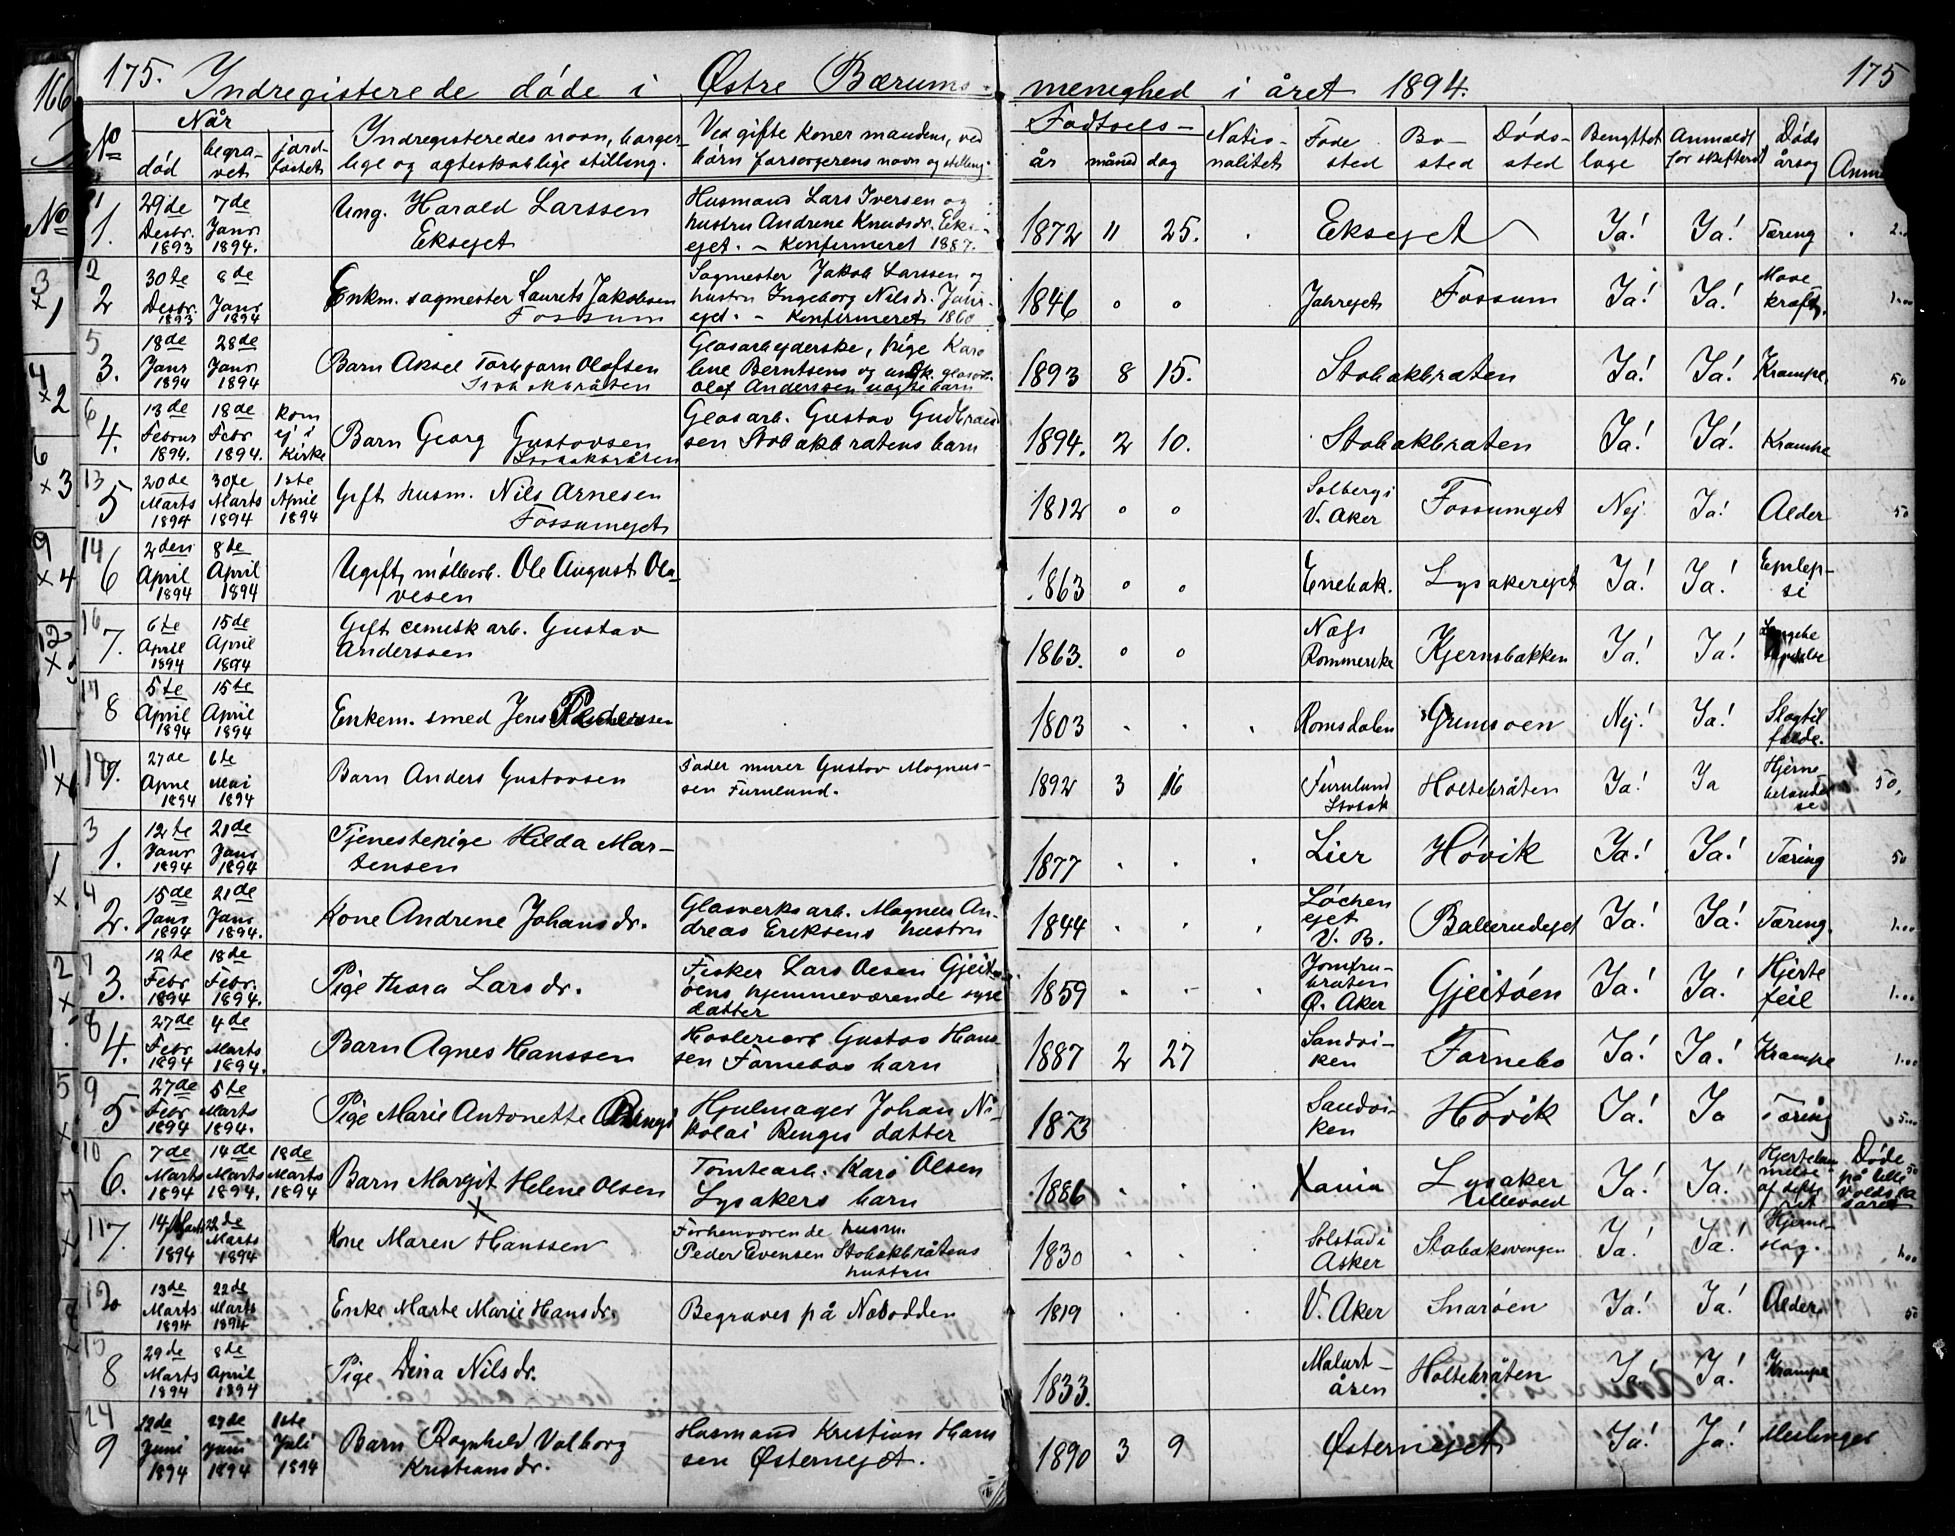 175. Indregisterede døde i Østre Bærums- menighed i året 1894. 175
166
No
Når
død
begra-
vet
jord-
fæstet
Indregisteredes navn, borger-
lige og ægteskablige stilling.
Ved gifte koner mandens, ved
børn forsørgerens navn og stilling.
Fødsels-
år måned dag
Natio-
nalitet
Føde
sted
Bo-
sted
Døds-
sted
Benyttet
læge
Anmeldt
for skifteret
Døds
årsag
1
1.
29de
Desbr.
1893
7de
Janr.
1894.
Ung. Harald Larssen
Ekseget
Husmand Lars Iversen og
hustru Andrine Knudsdr. Eks-
eget. - Konfirmeret 1887.
1872 11 25. Ekseget Ja! Ja! Tæring
2
2
30te
Desbr.
1893
8de
Janr
1894
Enkm. sagmester Laurits Jakobsen
Fossum
Sagmester Jakob Larssen og
hustru Ingeborg Nilsdr. Jahr-
eget. - Konfirmeret 1860
1846 0 0 Jahreget Fossum Ja! Ja! Mave
kræft. 1.00
5
3.
18de
Janr
1894
28de
Janr
1894
Barn Aksel Torbjørn Olafsen
Stabækbråten
Glasarbejderske, pige Karo
line Berntsens og
Olaf Anderssen uægte barn
1893 8 15. Stabækbråten Ja! Ja! Krampe. 50
6
4.
13de
Februr
1894.
18de
Febr
1894.
kom
ej i
kirke
Barn Georg Gustavsen
Stabækbråten
Glasarb. Gustav Gudbrand
sen Stabækbråtens barn
1894. 2 10. Stabækbråten Ja! Ja! Krampe
13
5
20de
Marts
1894
30te
Marts
1894
1ste
April
1894
Gift husm. Nils Arnesen
Fossumeget
1812 0 0 Solberg i
V. Aker Fossumeget Nej Ja! Alder 50
14
6
2den
April
1894
8de
April
1894
Ugift, møllearb. Ole August Ola-
vesen
1863 0 0 Enebak. Lysakereget Ja! Ja! Epilep-
si
16
7.
6te
April
1894
15de
April
1894
Gift cemetk arb. Gustav
Anderssen
1863. 0 0 Næs
Rommerike Kjernsbakken Ja! Ja!
17
8
5te
April
1894
15te
April
1894
Enkem. smed Jens Pederssen
1803 Romsdalen Grimsøen Nej! Ja! Slagtil
fælde.
19
9.
27de
April
1894
6te
Mai
1894
Barn Anders Gustavsen
Fader murer Gustav Magnus-
sen Furulund.
1892 3 16 Furulund
Stabæk Holtebråten Ja! Ja Hjerne
betændel
se 50.
3
1.
12te
Janr
1894
21de
Janr
1894
Tjenestepige Hilda Mar-
tensen
1877 Lier Høvik Ja! Ja! Tæring 50
4
2.
15de
Janr
1894
21de
Janr
1894.
Kone Andrine Johansdr.
Glasverksarb. Magnus An-
dreas Eriksens hustru
1844 Løchen
eget
V. B. Ballerudeget Ja! Ja! Tæring. 1.00
7
3.
12te
Febr
1894
18de
Febr.
1894.
Pige Thora Larsdr.
Fisker Lars Olsen Gjeit-
øens hjemmeværende syge
datter
1859 Jomfru-
bråten
Ø. Aker Gjeitøen Ja! Ja! Hjerte
feil 1.00
8
4.
27de
Febr
1894
4de
Marts
1894.
Barn Agnes Hanssen
Gustav Hans-
sen Fornebos barn
1887 2 27 Sandvi-
ken Fornebo Ja! Ja! Krampe 1.00
9
5
27de
Febr
1894
5te
Marts
1894.
Pige Marie Antonette Ringi
Hjulmager Johan Ni-
kolai Ringis datter
1873 Sandvi-
ken Høvik Ja! Ja Tæring
10
6.
7de
Marts
1894
14de
Marts
1894.
18de
Marts
1894
Barn Margit Helene Olsen
Tomtearb. Karo Olsen
Lysakers barn
1886 Xania Lysaker
Lillevold Ja! Ja! Døde
på Lille
vold
11
7.
14 Marts
1894
22de
Marts
1894
Kone Maren Hanssen
Forhenværende husm
Peder Evensen Stabækbråtens
hustru
1830 Solstad i
Asker Stabæksvingen Ja! Ja! Hjerne-
slag.
12
13de
Marts
1894
22de
Marts
1894
Enke Marte Marie Hansdr.
Begraves på Næsodden
1819 V. Aker Snarøen Ja! Ja! Alder 50
15
8
29de
Marts
1894
8de
April
1894
Pige Dina Nilsdr.
1833. Malurt-
åren Holtebråten Ja! Ja! Krampe
24
9
22de
Juni
1894
27de
Juni
1894
1ste
Juli
1894
Barn Ragnhild Valborg
Kristiansdr.
Husmand Kristian Hans
sen Østerneget.
1890 3 9 Østerneget Ja! Ja! Meslinger